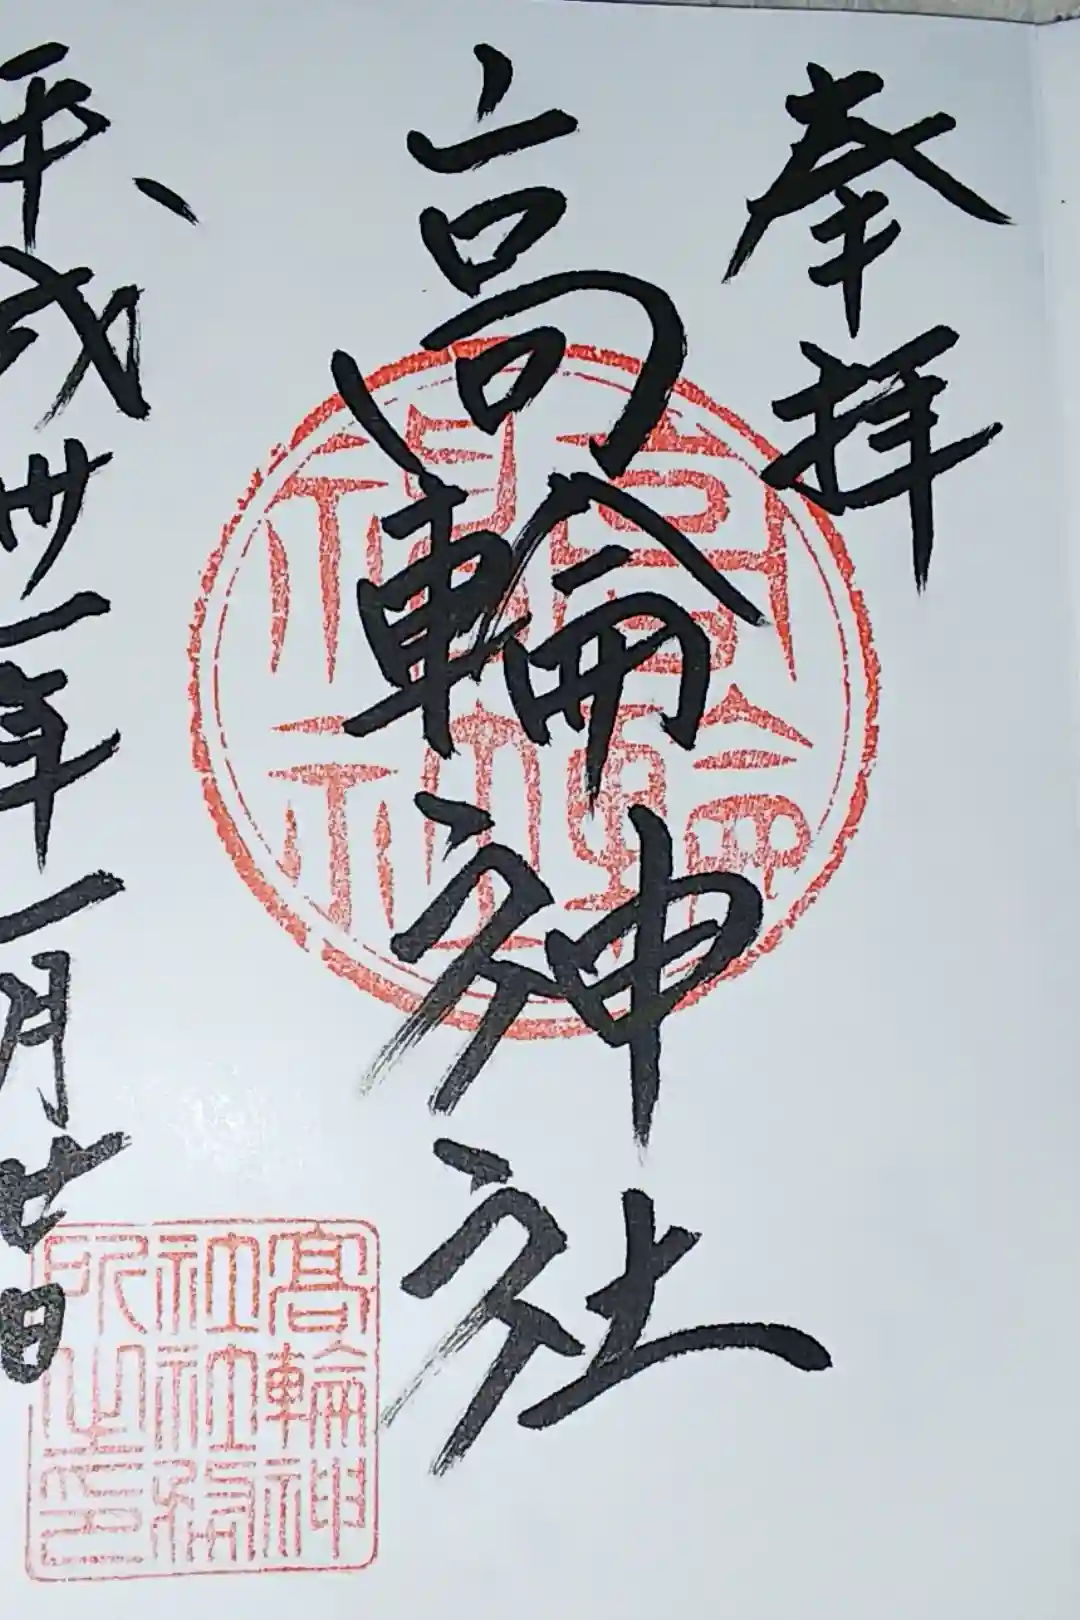 奉拝
高輪神社
平成丗一年一月廿日
高輪神
社社務
所之印